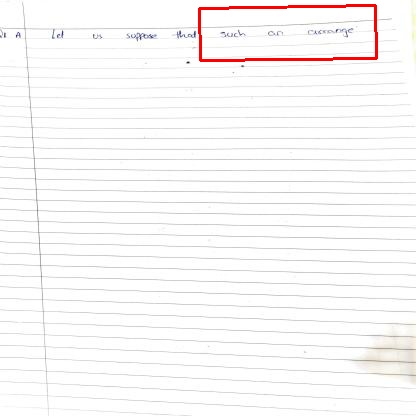 Let us suppose that such an arrange